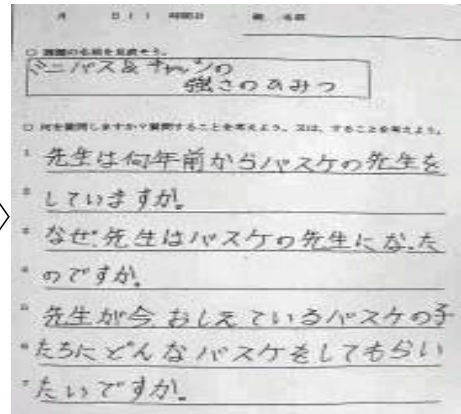 月 日( ) 時間目 組 名前
○ 課題の名前を見直そう。
ミニバス&チャレンジの
強さのひみつ
○ 何を質問しますか？質問することを考えよう。又は、することを考えよう。
1 先生は何年前からバスケの先生を
2 していますか。
3 なぜ、先生はバスケの先生になった
4 のですか。
5 先生が今おしえているバスケの子
6 たちにどんなバスケをしてもらい
7 たいですか。